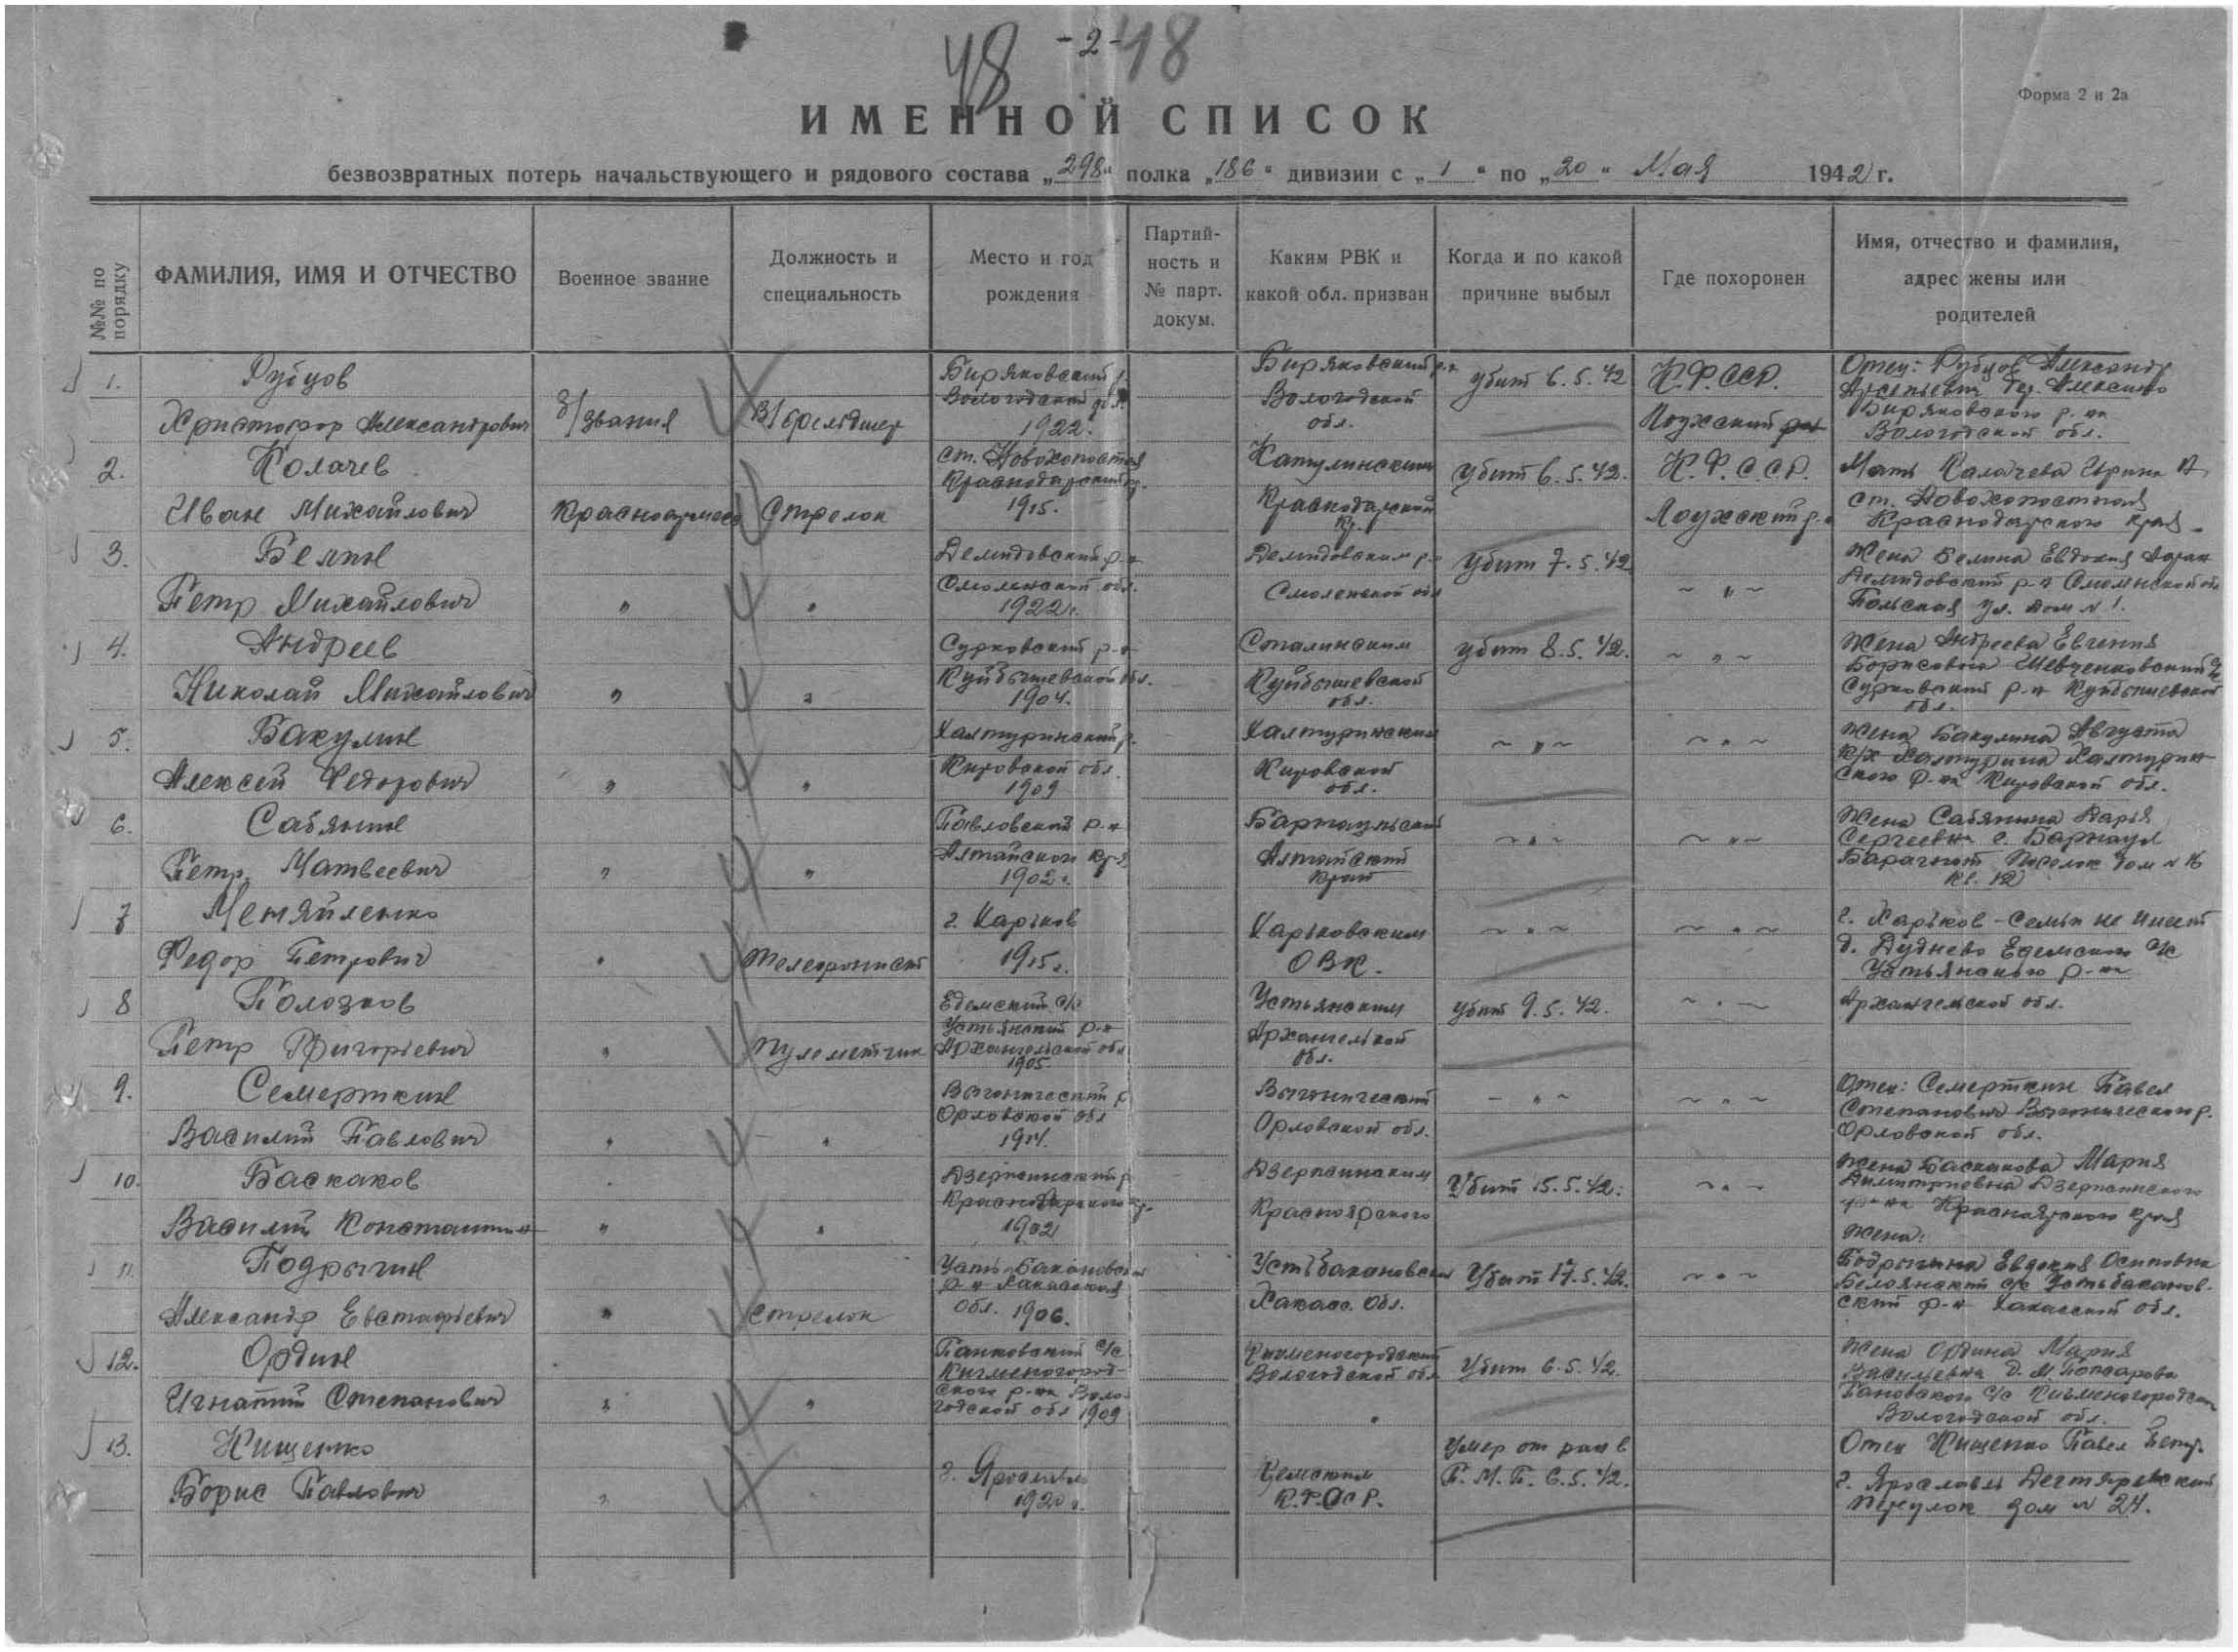 48 - 2 - 48
Форма 2 и 2а
ИМЕННОЙ СПИСОК
безвозвратных потерь начальствующего и рядового состава „298“ полка „186“ дивизии с „1“ по „20“ Мая 1942 г.
№№ по порядку
ФАМИЛИЯ, ИМЯ И ОТЧЕСТВО
Военное звание
Должность и
специальность
Место и год
рождения
Партий-
ность и
№ парт.
докум.
Каким РВК и
какой обл. призван
Когда и по какой
причине выбыл
Где похоронен
Имя, отчество и фамилия,
адрес жены или
родителей
1.
Рубцов
Христофор Александрович
б/звания
В/фельдшер
Биряковский р.
Вологодской обл.
1922.
Биряковский р.н
Вологодской
обл.
убит 6.5.42
К.Ф.ССР.
Лоухский рн
Отец: Рубцов Александр
Арсеньевич дер. Алексино
Биряковского р-на
Вологодской обл.
2.
Колачев
Иван Михайлович
Красноармеец
Стрелок
ст.
Краснодарский кр.
1915.
Краснодарский
Кр.
убит 6.5.42.
К.Ф.С.С.Р.
Лоухский р.н
Мать Калачева Ирина
ст.
Краснодарского края
3.
Белин
Петр Михайлович
"
"
Демидовский р-н
Смоленской обл.
1922г.
Демидовским р-н
Смоленской обл
Убит 7.5.42.
~ " ~
Жена Белина Евдокия
Демидовский р-н Смоленской обл
ул. дом № 1.
4.
Андреев
Николай Михайлович
"
"
Сурковский р-н
Куйбышевской обл.
1904.
Сталинским
Куйбышевской
обл.
убит 8.5.42.
~ " ~
Жена Андреева Евгения
Борисовна Шевченковский с/с
Сурковский р-н Куйбышевской
обл.
5.
Бакулин
Алексей Федорович
"
"
Халтуринский р.
Кировской обл.
1909
Халтуринским
Кировской
обл.
~ " ~
~ " ~
Жена Бакулина Августа
к/х Халтурина Халтурин-
ского р-на Кировской обл.
6.
Сабянин
Петр Матвеевич
"
"
Павловский р-н
Алтайского кр-я
1902г.
Барнаульский
Алтайский
край
~ " ~
~ " ~
Жена Сабянина Дарья
Сергеевна г. Барнаул
Барачный поселок дом № 16
кв. 12
7
Меняйленко
Федор Петрович
"
Телефонист
г. Харьков
1915г.
Харьковским
ОВК.
~ " ~
~ " ~
г. Харьков - Семьи не имеет
8
Полозков
Петр Григорьевич
"
Пулеметчик
Едемский с/с
Устьянский р-н
Архангельской обл
1905.
Устьянским
Архангельской
обл.
убит 9.5.42.
~ " ~
д. Дуднево Едемского с/с
Устьянского р-на
Архангельской обл.
9.
Семерткин
Василий Павлович
"
"
Выгонический р
Орловской обл
1914.
Выгонический
Орловской обл.
- " ~
~ " ~
Отец: Семерткин Павел
Степанович Выгонического р.
Орловской обл.
10.
Баскаков
Василий Константин
"
"
Дзержинский р
кр.
1902
Дзержинским
Красноярского
Убит 15.5.42.
~ " ~
Жена Баскакова Мария
Димитриевна Дзержинского
р-на Красноярского края
11.
Подрыгин
Александр Евстафьевич
"
Стрелок
Усть-Абаканский
р-н Хакасская
обл. 1906.
Хакасс. Обл.
Убит 17.5.42.
~ " ~
Жена:
Подрыгина Евдокия Осиповна
Белоянский с/с
ский р-н Хакасской обл.
12.
Ордин
Игнатий Степанович
"
"
с/с
Кичменгород-
ского р-на Воло-
годской обл 1909
Кичменгородский
Вологодской обл
"
Убит 6.5.42.
Жена Ордина Мария
Васильевна
с/с
Вологодской обл.
13.
Нищенко
Борис Павлович
"
г. Ярославль
1920 г.
Кемским
К.Ф.ССР.
Умер от ран в
П.М.П. 6.5.42.
Отец Нищенко Павел Петр.
г. Ярославль Дегтяревский
переулок дом № 24.